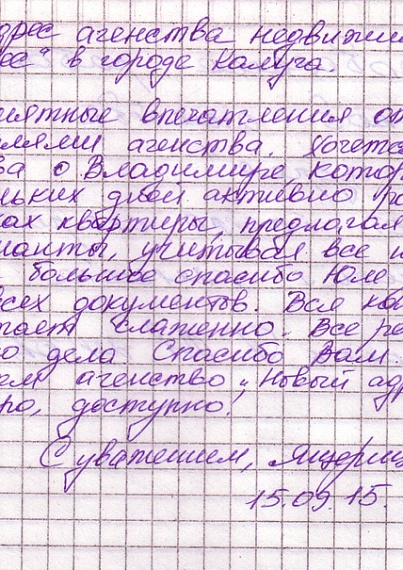 дрес агенства недвижим
ес" в городе Калуга.
иятные впечатления от
лями агенства. Хочется
ва о Владимире, котор
ьких дней активно ра
ках квартиры, предлагая
ианты, учитывая все н
большое спасибо Юле
всех документов. Вся ко
тает слаженно. Все ре
о дела Спасибо Вам.
ем агенство „Новый адр
ро, доступно!
С уважением, Ящериц
15.09.15.